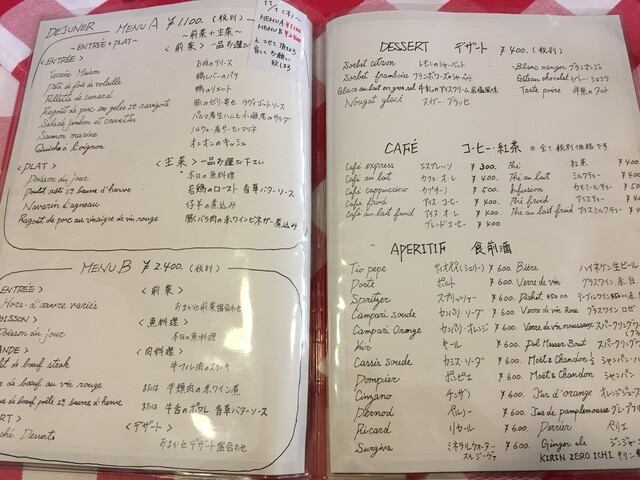 DEJUNER MENU A ¥1100. (税別)
~ENTRÉE+PLAT~ ~前菜+主菜~
MENU A ¥1100
MENU B ¥2400
<ENTRÉE> <前菜> 一品お選び下さい
Terrine Maison お肉のテリーヌ
Paté de foie de volaille 鶏レバーのパテ
Rillette de canard 鴨のリエット
Ragoût de porc en gelée ラヴィゴットソース
Salade jambon et crevettes パルマ産生ハムと小海老のサラダ
Saumon marine ノルウェー産サーモンマリネ
Quiche à l'oignon オニオンのキッシュ
<PLAT> <主菜> 一品お選び下さい
Poisson du jour 本日の魚料理
Poulet rôti 若鶏のロースト 香草バターソース
Navarin d'agneau 仔羊の煮込み
Ragoût de porc au vinaigre de vin rouge 豚バラ肉の赤ワインビネガー煮込み
MENU B ¥2.400. (税別)
ENTRÉE> <前菜>
Hors-d'œuvre variés おまかせ前菜盛合わせ
POISSON> <魚料理>
Poisson du jour 本日の魚料理
ANDE> <肉料理>
de bœuf steak 牛フィレ肉のステーキ
de bœuf au vin rouge または 牛頬肉の赤ワイン煮
または 牛舌のポワレ 香草バターソース
RT> <デザート>
おまかせデザート盛合わせ
DESSERT デザート ¥400. (税別)
Sorbet citron レモンのシャーベット Blanc manger ブランマンジェ
Sorbet framboise フランボワーズのシャーベット Gâteau chocolat ガトーショコラ
Glace au lait en gros sel 牛乳のアイスクリーム岩塩風味 Tarte poire 洋梨のタルト
Nougat glacé ヌガーグラッセ
CAFÉ コーヒー・紅茶 ※全て税別価格です
Café express エスプレッソ ¥300. Thé 紅茶 ¥400.
Café au lait カフェ・オ・レ ¥400. Thé au lait ミルクティー
Café cappuccino カプチーノ ¥500. Infusion カモミールティー
Café froid アイス・コーヒー ¥400. Thé froid アイスティー
Café au lait froid アイス・オ・レ ¥400. Thé au lait froid アイスミルクティー
ブレンドコーヒー ¥400.
APERITIF 食前酒
Tio pepe ティオペペ(シェリー) ¥600. Bière ハイネケン生ビール
Porto ポルト ¥600. Verre de vin グラスワイン、赤、白
Spritzer スプリッツァー ¥600. Pichet
Campari soude カンパリ・ソーダ ¥600. Verre de vin Rose グラスワイン ロゼ
Campari Orange カンパリ・オレンジ ¥600. Verre de vin mousseux スパークリングワイン
Kir キール ¥600.
Cassis Soude カシス・ソーダ ¥600. Moët & Chandon ½ シャンパン
Pompier ポンピエ ¥600. Moët & Chandon シャンパン
Cinzano チンザノ ¥600. Jus d'orange オレンジジュース
Pernod ペルノー ¥600. Jus de pamplemousse
Ricard リカール ¥600. Perrier ペリエ
Surgiva ミネラルウォーター ¥600. Ginger ale
スルジーヴァ KIRIN ZERO ICHI